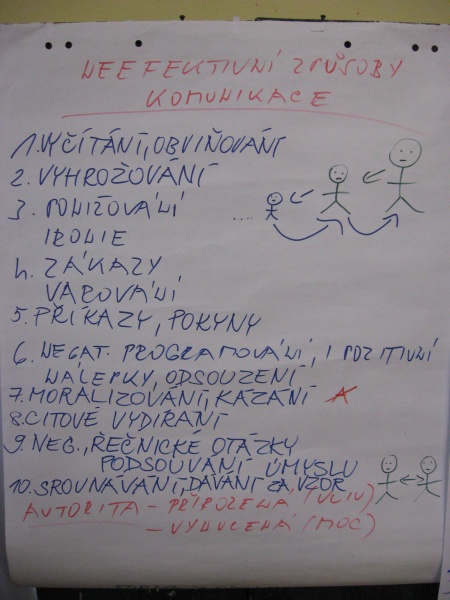 NEEFEKTIVNÍ ZPŮSOBY
KOMUNIKACE
1. VYČÍTÁNÍ, OBVIŇOVÁNÍ
2. VYHROŽOVÁNÍ
3. PONIŽOVÁNÍ
IRONIE
4. ZÁKAZY,
VAROVÁNÍ
5. PŘÍKAZY, POKYNY
6. NEGAT. PROGRAMOVÁNÍ, I POZITIVNÍ
NÁLEPKY, ODSOUZENÍ
7. MORALIZOVÁNÍ, KÁZÁNÍ
8. CITOVÉ VYDÍRÁNÍ
9. NEG., ŘEČNICKÉ OTÁZKY
PODSOUVÁNÍ ÚMYSLU
10. SROVNÁVÁNÍ, DÁVÁNÍ ZA VZOR
AUTORITA - PŘIROZENÁ (VLIV)
- VYNUCENÁ (MOC)